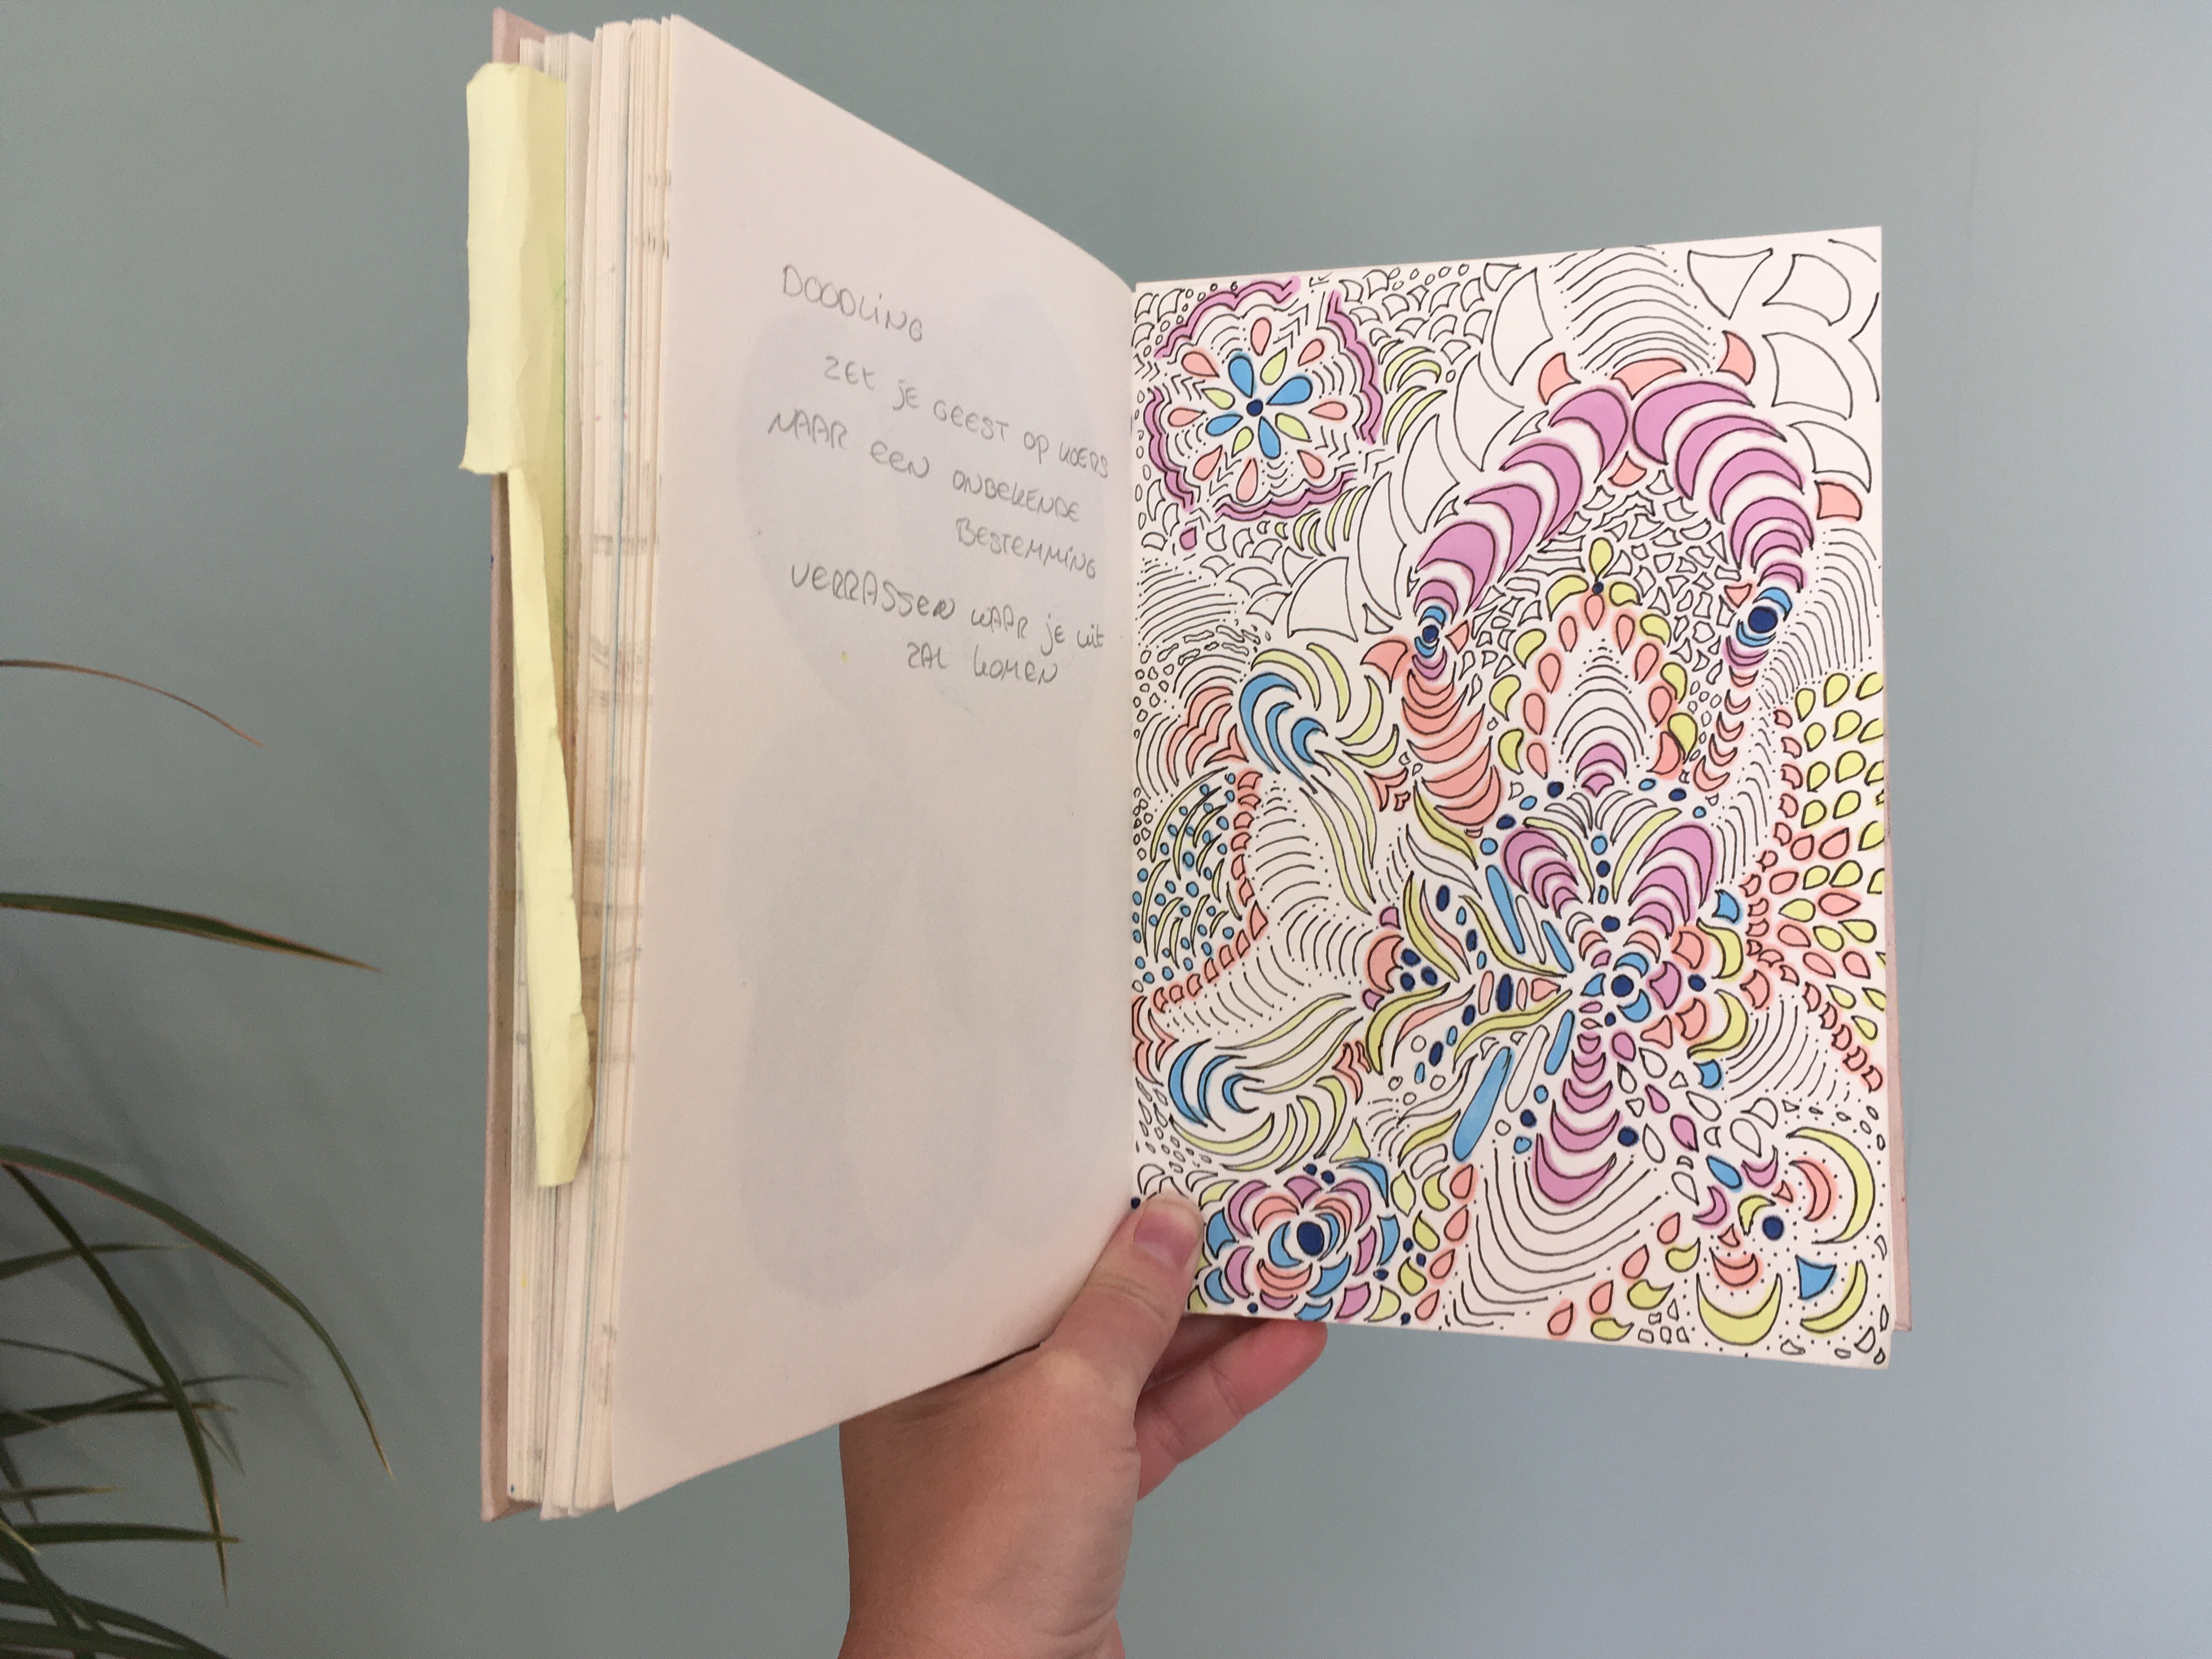 DOODLiNG
ZET jE GEEST OP KOERS
NAAR EEN ONBEKENDE
BESTEMMiNG
VERRASSEN WAAR jE uit
ZAL KOMEN